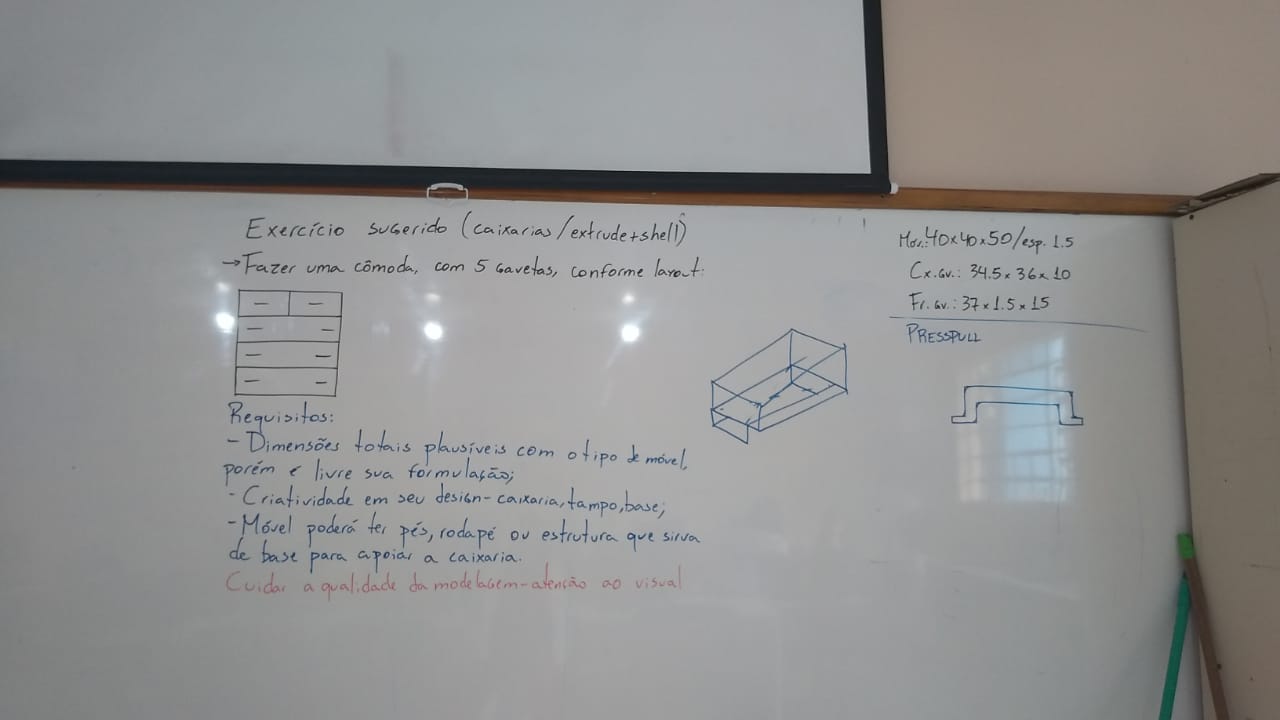 Exercício sugerido (caixarias/extrude+shell)
→Fazer uma cômoda, com 5 gavetas, conforme layout:
Requisitos:
- Dimensões totais plausíveis com o tipo de móvel,
porém é livre sua formulação;
- Criatividade em seu design-caixaria, tampo, base;
- Móvel poderá ter pés, rodapé ou estrutura que sirva
de base para apoiar a caixaria.
Cuidar a qualidade da modelagem-atenção ao visual
Mov.: 40x40x50/esp. 1.5
Cx.gv.: 34.5x36x10
Fr.gv.: 37x1.5x15
PRESSPULL